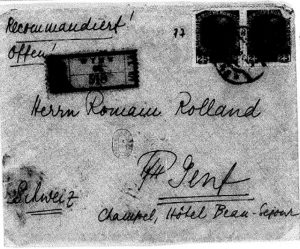 Recommandiert!
Offen!
77
Herrn Romain Rolland
Genf
Schweiz
Champel, Hôtel Beau-Séjour